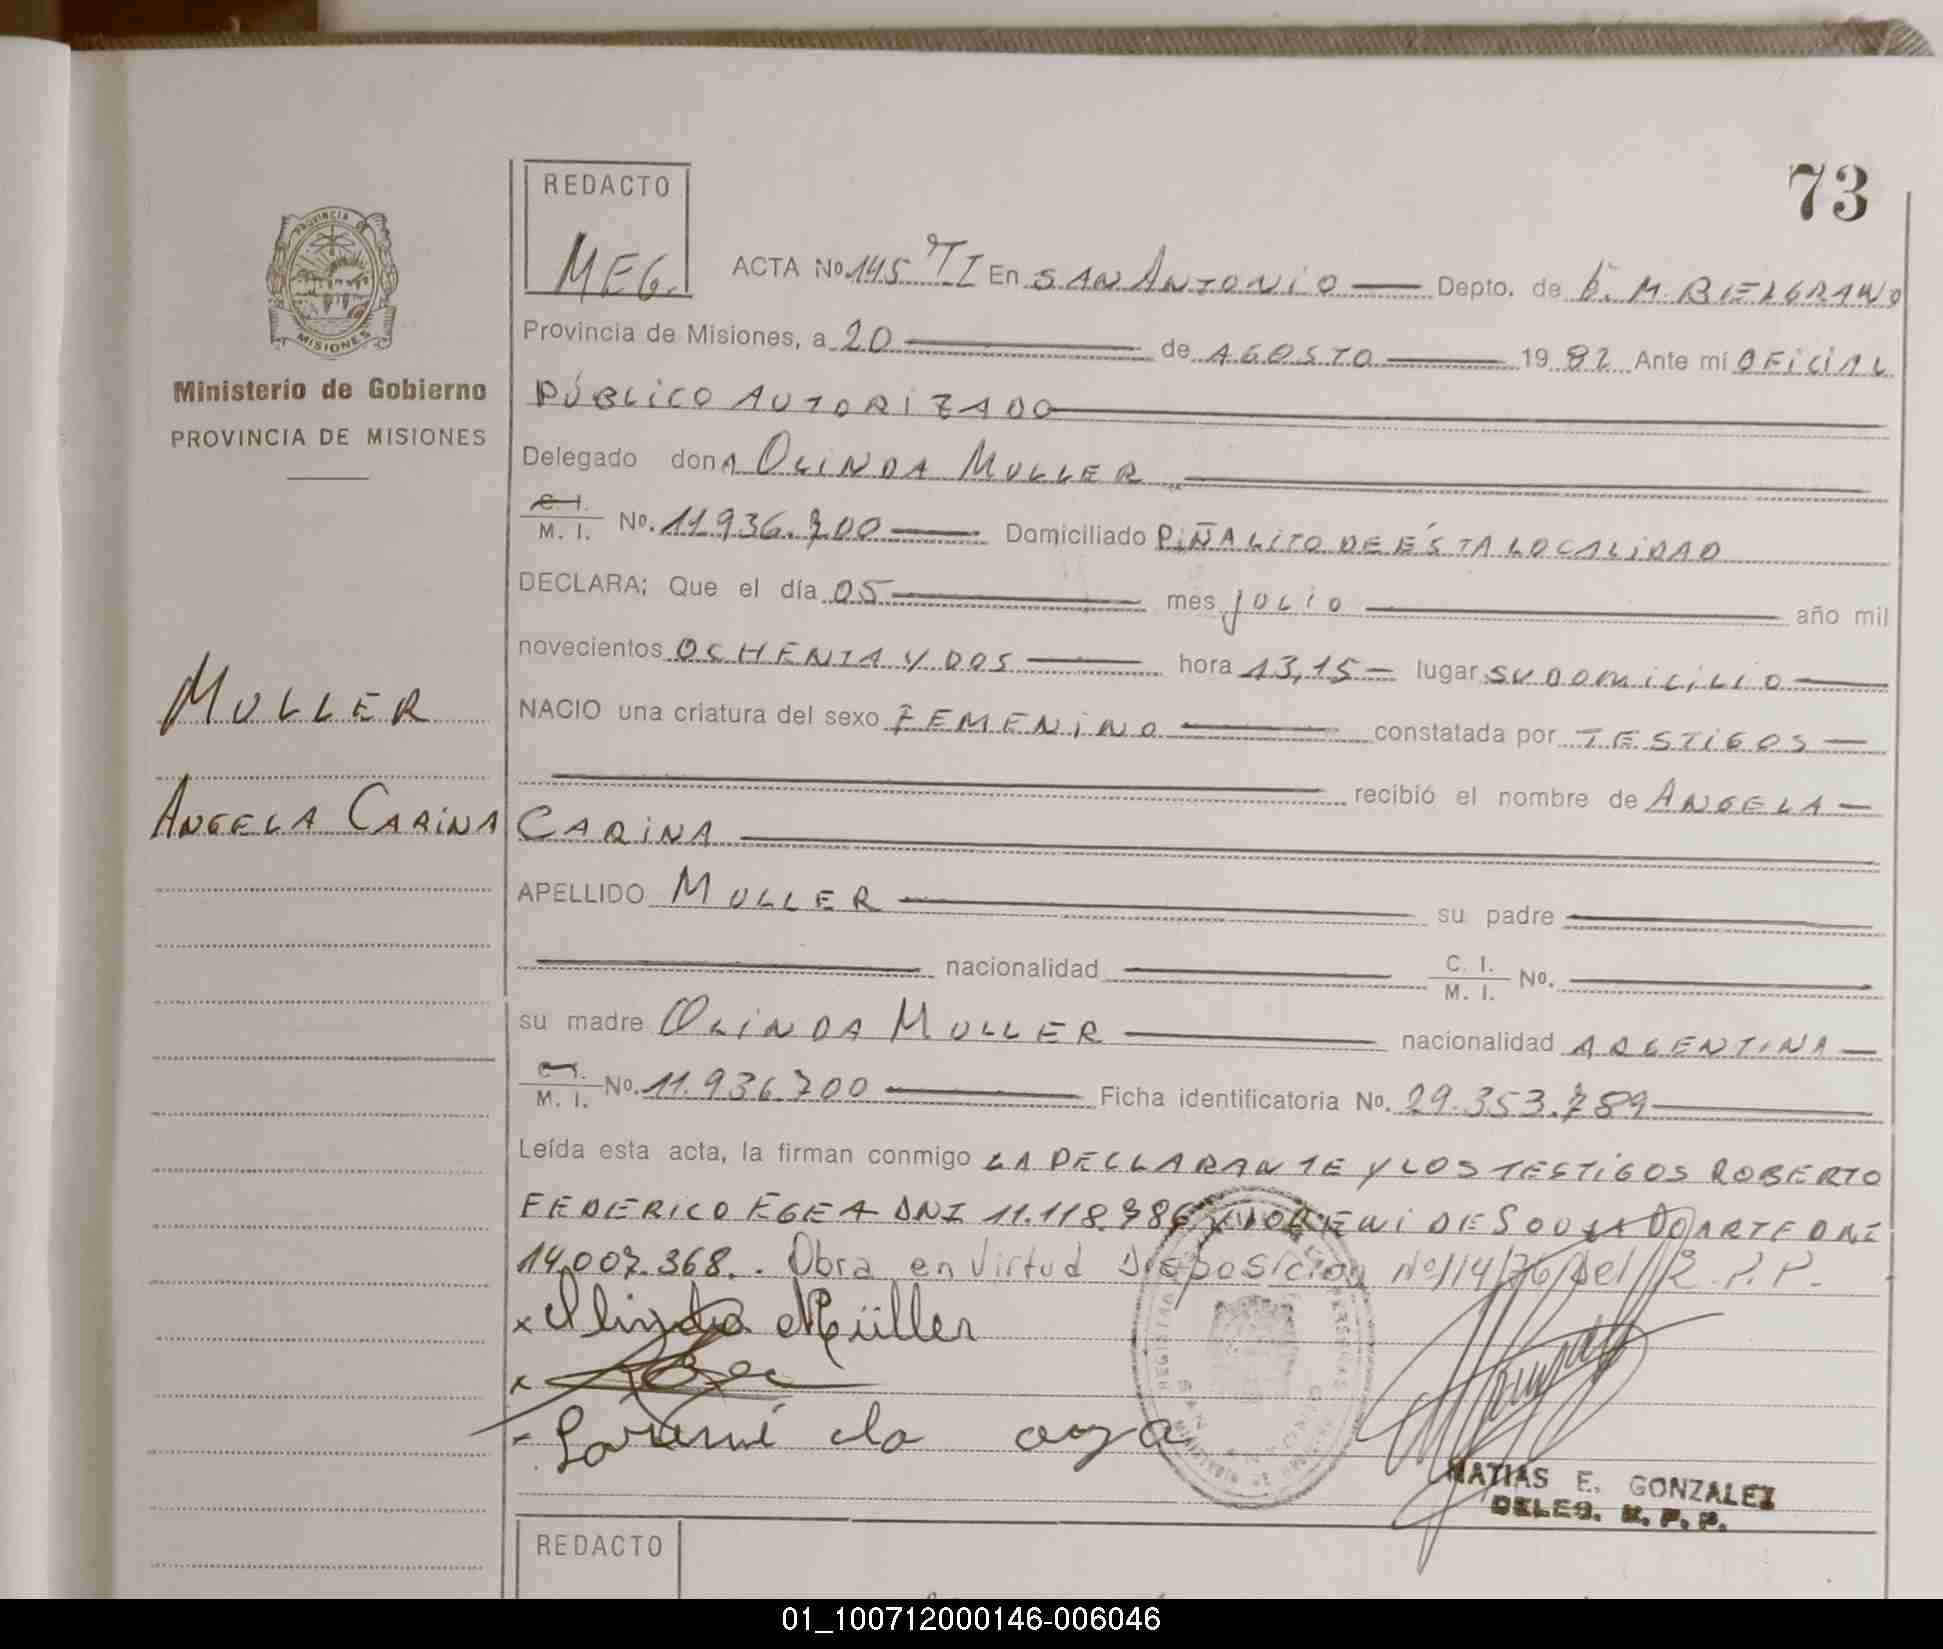 73
REDACTO
MEG.
PROVINCIA DE
MISIONES
Ministerio de Gobierno
PROVINCIA DE MISIONES
MULLER
ANGELA CARINA
ACTA No. 145 "TI En SAN ANTONIO Depto. de G. M. BELGRANO
Provincia de Misiones, a 20 de AGOSTO 1982 Ante mí OFICIAL
PÚBLICO AUTORIZADO
Delegado donA OLINDA MULLER
C. I. M. I. No. 11.936.700 Domiciliado PIÑALITO DE ÉSTA LOCALIDAD
DECLARA; Que el día 05 mes JULIO año mil
novecientos OCHENTA Y DOS hora 13,15 lugar SU DOMICILIO
NACIO una criatura del sexo FEMENINO constatada por TESTIGOS
recibió el nombre de ANGELA
CARINA
APELLIDO MULLER su padre
nacionalidad C. I. M. I. No.
su madre OLINDA MULLER nacionalidad ARGENTINA
C. I. M. I. No. 11.936.700 Ficha identificatoria No. 29.353.789
Leída esta acta, la firman conmigo LA DECLARANTE Y LOS TESTIGOS ROBERTO
FEDERICO EGEA DNI 11.118.986 DE SOUZA DOARTE DNI
14.007.368.. Obra en virtud Disposición Nº 114/76 del R.P.P.
x Olinda Müller
x
MATIAS E. GONZALEZ
DELEG. R. P. P.
REDACTO
01_100712000146-006046